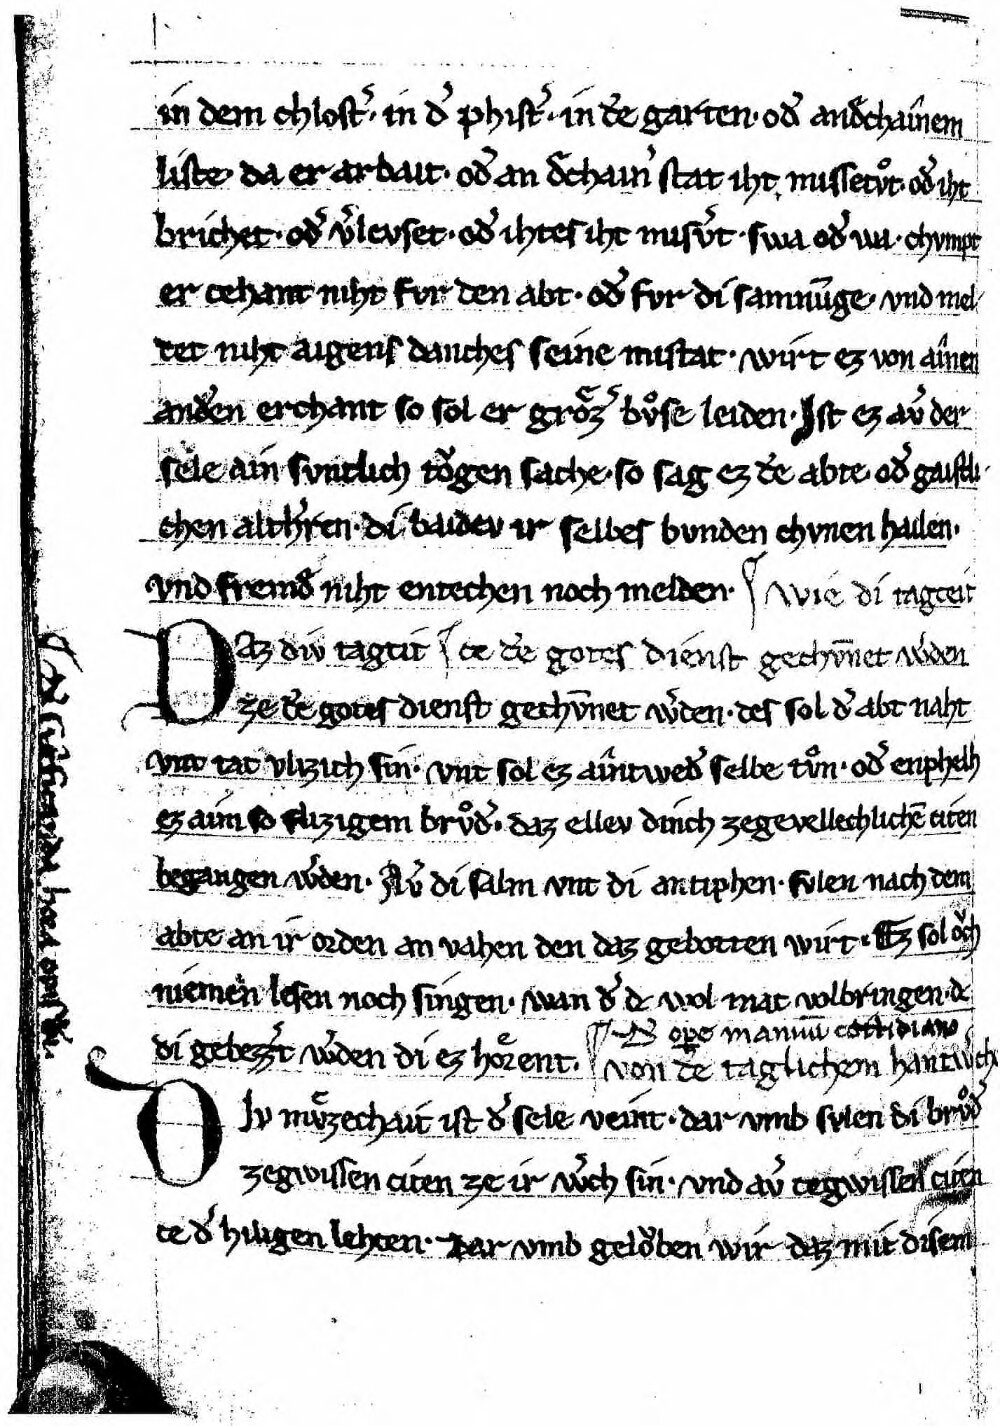 in dem chlost᷑· in d᷑ phist᷑· in dē garten· od᷑ and᷑chainem
liste· da er arbait· od᷑ an d᷑chain᷑ stat iht missetuͦt· od᷑ iht
brichet· od᷑ v᷑leuset· od᷑ ihtes iht misv᷑t· swa od᷑ wa· chvmpt
er cehant niht fvr den abt· od᷑ fvr di samnūge· vnd mel
tet niht aigens danches seine mistat· wirt ez von ainen
and᷑en erchant so sol er groͤz᷑ buͦse leiden· Ist ez av᷑ der
sele ain svntlich toͮgen sache· so sag ez dē abte· od᷑ gaistli
chen alth᷑ren· di baidev ir selbes vunden chvnen hailen·
vnd fremd᷑ niht entechen noch melden· wie di tagceit
Daz div tagtit ce dē gotes dienst gechv̄net w᷑den
ze dē gotes dienst gechv̄net w᷑den· des sol d᷑ abt naht
vnt tac vlizich sin· vnt sol ez aintwed᷑ selbe tuͦn· od᷑ enphelh
ez aim so flizigem bruͦd᷑· daz ellev dinch zegevellechlichē citen
begangen w᷑den· Av᷑ di salm vnt di antiphen· svlen nach dem
abte an ir orden an vahen den daz gebotten wirt· Ez sol oͮch
niemen lesen noch singen· wan d᷑ dc wol mac volbringen· dc
di gebezz᷑t w᷑den di ez hoͤrent. De ope manuū cottidiano
von dē taglichem hantw᷑ch
Div muͤzechait ist d᷑ sele veint· dar vmb svlen di bruͦd᷑
zegwissen citen ze ir w᷑ch sin· vnd av᷑ cegwissen citen
ce d᷑ hiligen lehcen· Dar vmb geloͮben wir daz mit disem
De significanda hora opis dei